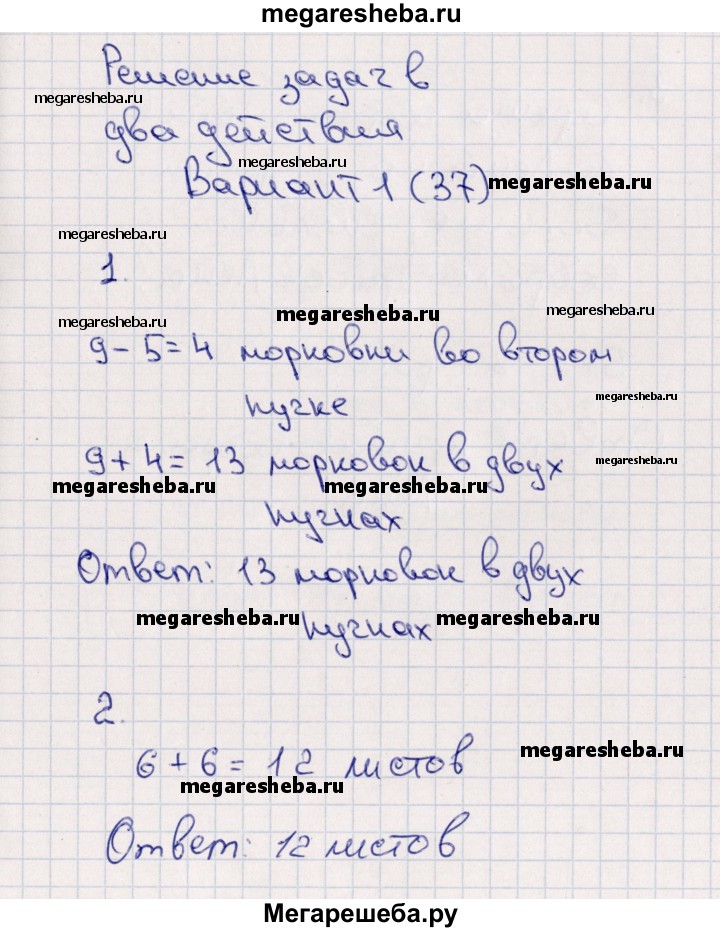 megaresheba.ru
Решение задач в
megaresheba.ru
два действия
megaresheba.ru
Вариант 1 (37) megaresheba.ru
megaresheba.ru
1.
megaresheba.ru megaresheba.ru megaresheba.ru
9 - 5 = 4 морковки во втором
megaresheba.ru
пучке
9 + 4 = 13 морковок в двух megaresheba.ru
megaresheba.ru megaresheba.ru
пучках
Ответ: 13 морковок в двух
megaresheba.ru пучках megaresheba.ru
2.
6 + 6 = 12 листов megaresheba.ru
megaresheba.ru
Ответ: 12 листов
Мегарешеба.ру